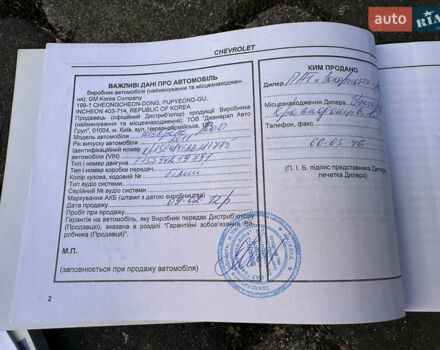 AUTO RIA
CHEVROLET
ВАЖЛИВІ ДАНІ ПРО АВТОМОБІЛЬ
Виробник автомобіля (найменування та місцезнаходжен-
ня): GM Korea Company
199-1 CHEONGCHEON-DONG, PUPYEONG-GU.
INCHEON 403-714, REPUBLIC OF KOREA
Продавець (офіційний Дистриб'ютор) продукції Виробника
(найменування та місцезнаходження): ТОВ "Дженерал Авто
Груп", 01004, м. Київ, вул. Червоноармійська,
Модель автомобіля
Рік випуску автомобіля 2011
Ідентифікаційний номер
автомобіля (VIN)
Тип і номер двигуна
Тип і номер коробки передач
Колір кузова, код емалі
Тип аудіо системи
Серійний № аудіо системи
Маркування АКБ (штамп з датою виробництва)
Дата продажу
Пробіг при продажу
Гарантія на автомобіль, яку Виробник передає Дистриб'ютору
(Продавцю), вказана в розділі "Гарантійні зобов'язання Ви-
робника (Продавця)".
М.П.
(заповнюється при продажу автомобіля)
2
КИМ ПРОДАНО
Дилер ПАТ
Місцезнаходження Дилера
Телефон, факс
60-05-46
(П. І. Б. підпис представника Дилера
печатка Дилера)